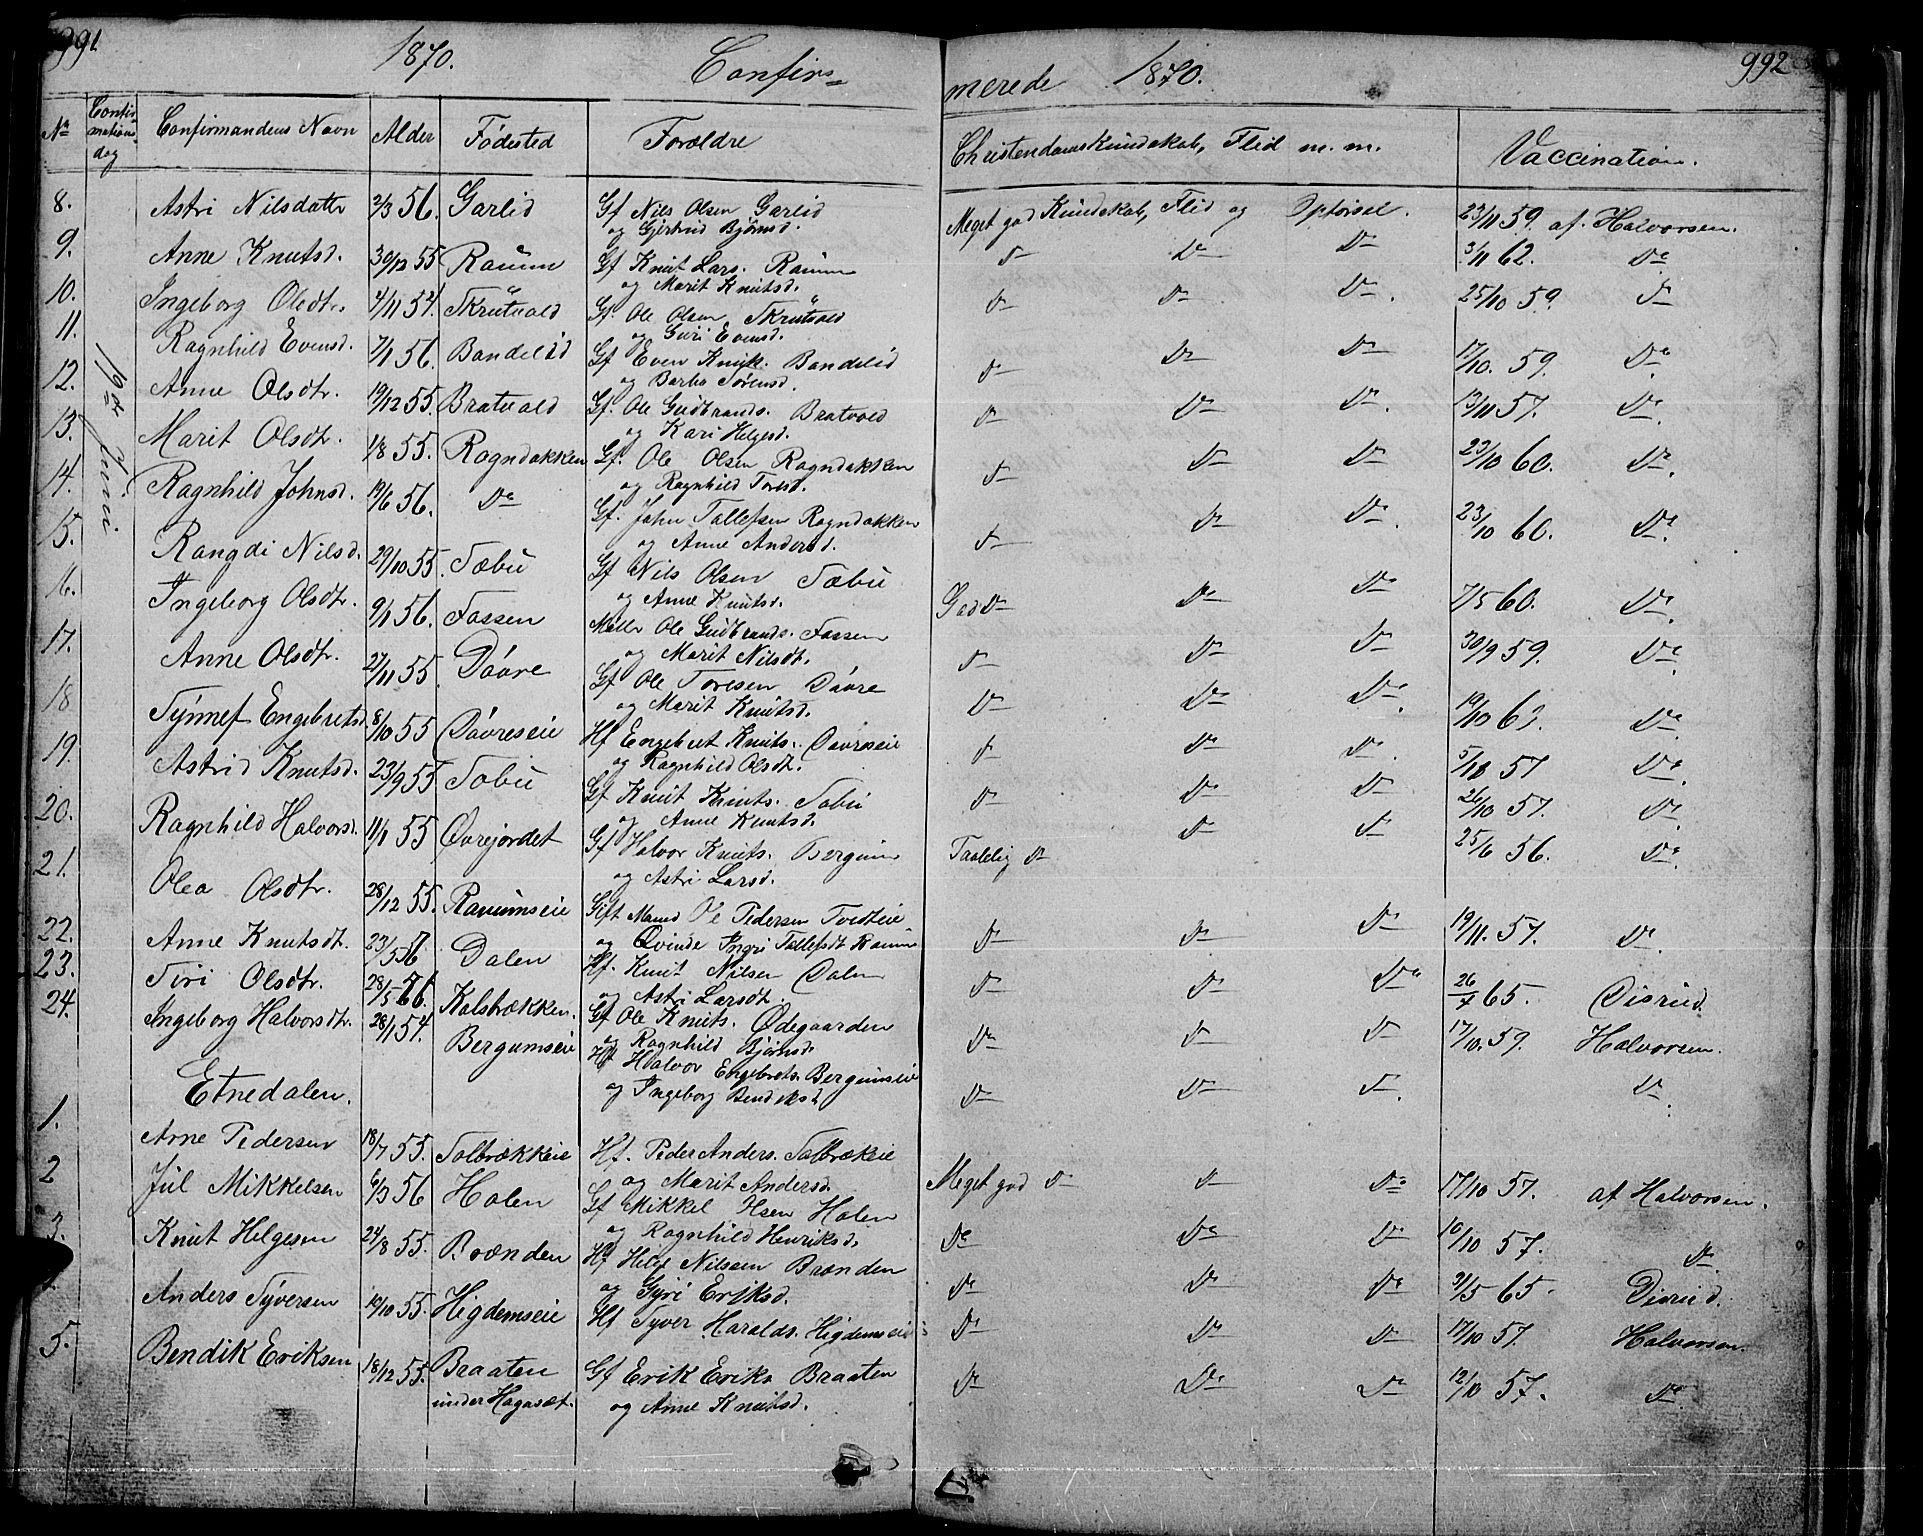 991.
1870. Confir=
No Confirmations dag Confirmandens Navn Alder Fødested Forældre
8. Astri Nilsdattr 2/3 56. Garlid Gf Nils Olsen Garlid
og Gjertrud Bjørnsd.
9. Anne Knutsd. 30/12 55 Ranum Gf Knut Lars. Ranum
og Marit Knutsd.
10. Ingeborg Olsdtr. 4/11 54. Skrutvold Gf. Ole Olsen Skrutvold
og Guri Evensd.
11. Ragnhild Evensd. 7/1 56. Bandelid Gf Even Knut. Bandelid
og Barbo Sørensd.
12. Anne Olsdtr. 19/12 55. Bratvold Gf. Ole Gudbrands. Bratvold
og Kari Helgesd.
13. Marit Olsdtr. 1/8 55. Rogndokken Gf. Ole Olsen Rogndokken
og Ragnhild Toresd.
14. Ragnhild Johnsd. 19/6 56. Do Gf. John Tollefsen Rogndokken
og Anne Andersd.
15. Rangdi Nilsd. 29/10 55. Sæbu Gf Nils Olsen Sæbu
og Anne Knutsd.
16. Ingeborg Olsdtr. 9/1 56. Fossen Møller Ole Gudbrands. Fossen
og Marit Nilsdt.
17. Anne Olsdtr. 27/11 55 Døvre Gf Ole Toresen Døvre
og Marit Knutsd.
18 Synnef Engebretsd. 8/10 55 Døvreseie Hf Engebret Knuts. Døvreseie
og Ragnhild Olsdt.
19. Astrid Knutsd. 23/9 55 Sæbu Gf Knut Knuts. Sæbu
og Anne Knutsd.
20. Ragnhild Halvorsd. 11/1 55 Øvrejordet Gf Halvor Knuts. Bergum
og Astri Larsd.
21. Olea Olsdtr. 28/12 55. Ranumseie Gift Mand Ole Pedersen Tvedteie
og Qvinde Ingri Tollefsdt Ranum
22. Anne Knutsdt. 23/5 56. Dalen Hf. Knut Nilsen Dalen
og Astri Larsdt.
23. Siri Olsdtr. 28/5 56. Kalsbrækken. Gf Ole Knuts. Ødegaarden
og Ragnhild Bjørnsd.
24. Ingeborg Halvorsdtr. 28/1 54. Bergumseie Hf Halvor Engebrets. Bergumseie
og Ingeborg Bendiksd.
19de Juni
Etnedalen.
1. Arne Pedersen 18/7 55. Solbrækkeie Hf. Peder Anders. Solbrækeie
og Marit Andersd.
2 Jul Mikkelsen 6/3 56 Holen Gf Mikkel Olsen Holen
og Ragnhild Henriksd.
3. Knut Helgesen 24/8 55. Brænden Hf Helge Nilssen Brænden
og Gyri Eriksd.
Anders Syversen 19/10 55. Høgdemseie Hf Syver Haralds. Høgdemseie
5. Bendik Eriksen 18/12 55. Braaten Gf Erik Eriks Braaten
under Hagaset. og Anne Knutsd.
992
merede 1870.
Christendomskundskab, Flid m. m. Vaccination.
Meget god Kundskab, Flid og Opførsel. 23/11 59. af. Halvorsen.
Do Do Do 3/11 62. Do
Do Do Do. 25/10 59. Do
Do Do Do 17/10. 59. Do.
Do Do Do. 13/11 57. Do.
Do Do Do 23/10 60. Do.
Do Do Do. 23/10 60. Do.
God Do Do Do 7/5 60. Do.
Do Do Do 30/9 59. Do.
Do Do Do. 19/10 63. Do.
Do Do Do. 5/11 57 Do.
Do Do Do 26/10 57. Do
Taalelig Do Do Do 25/6 56. Do.
Do Do Do 19/11. 57. Do.
Do Do Do 26/7 65. Disrud.
Do Do Do 17/10. 59. Halvorsen.
Do Do Do. Do.
Meget god Do Do Do 17/10 57. af Halvorsen.
Do Do Do 10/10 57. Do.
Do Do Do 31/5 65. Disrud.
Do Do Do 17/10 57. Halvorsen.
Do Do Do 12/10 57. Do.